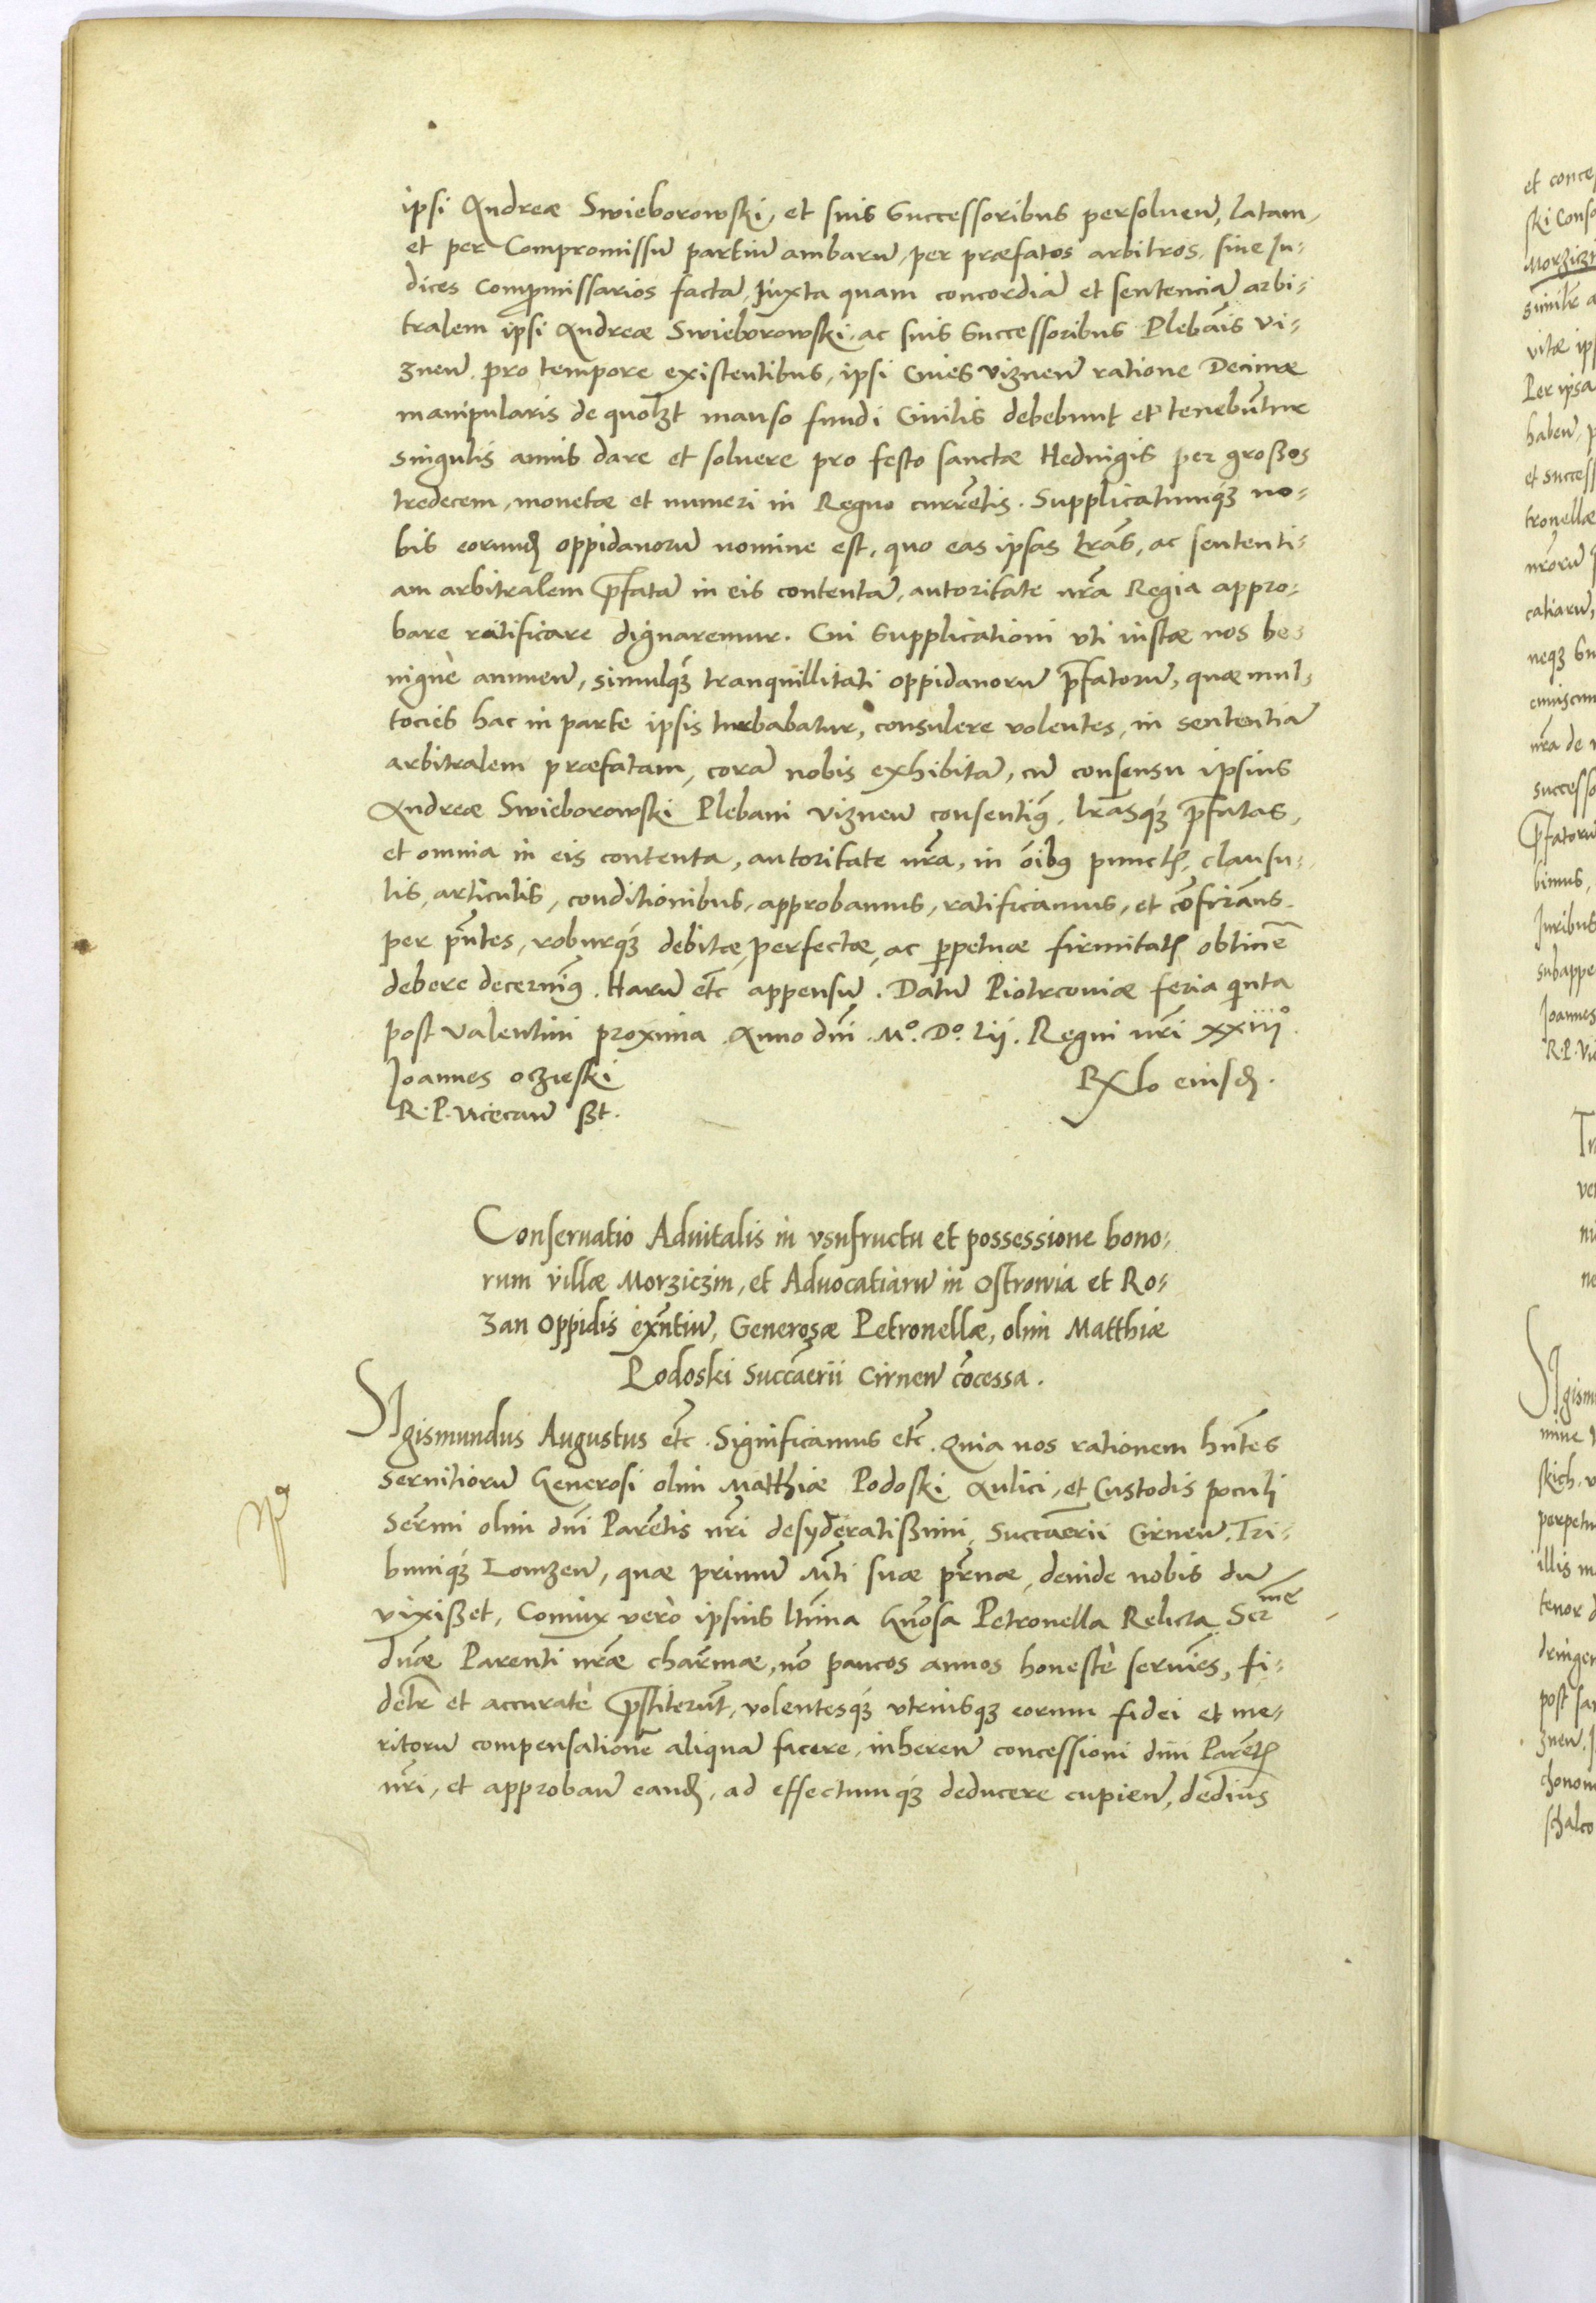 ipsi Andreæ Swieborowski, et suis Successoribus persoluen̄, latam,
et per Compromissū partiū ambarū, per præfatos arbitros, siue Ju-
dices Compmissarios factā, Juxta quam concordiā et sentenciā arbi-
tralem ipsi Andreæ Swieborowski, ac suis Successoribus Plebāis Vi-
znen̄ pro tempore existentibus, ipsi Ciues Viznen̄ ratione Decimæ
manipularis de quolȝt manso fundi Ciuilis debebunt et tenebūtur
singulis annis dare et soluere pro festo sanctæ Heduigis per großos
tredecem, monetæ et numeri in Regno currētis. Supplicatumqȝ no-
bis eorund oppidanorū nomine est, quo eas ipsas lrās, ac sententi-
am arbitralem pfatā in eis contentā, autoritate nrā Regia appro-
bare ratificare dignaremur. Cui Supplicationi vti iustæ nos be-
nignè annuen̄, simulqȝ tranquillitati oppidanorū pfatorū, quæ mul-
tocies hac in parte ipsis turbabatur, consulere volentes, in sententiā
arbitralem præfatam, corā nobis exhibitā, cū consensu ipsius
Andreæ Swieborowski Plebani Viznen̄ consentiꝰ, lrasqȝ pfatas,
et omnia in eis contenta, autoritate nrā, in oībꝰ punctꝭ, clausu-
lis, articulis, conditionibus, approbamus, ratificamus, et cōfirāmus.
per pn̄tes, roburqȝ debitæ, perfectæ, ac ppetuæ firmitatꝭ obtinē
debere decernīꝰ. Harū etc̄ appensū. Datū Piotrcouiæ feria qinta
post Valentini proxima Anno dn̄i. Mº. Dº. Lii. Regni nr̄i xxiiiº.
Joannes oczieski
R. P. Vicecan̄ ßt.
Rᵒ eiusd.
Conseruatio Aduitalis in vsufructu et possessione bono-
rum villæ Morziczin, et Aduocatiarū in Ostrowia et Ro-
zan Oppidis exn̄tiū, Generosæ Petronellæ, olim Matthiæ
Podoski Succāerii Cirnen̄ cōcessa.
SIgismundus Augustus etc̄. Significamus etc̄. Quia nos rationem hn̄tes
seruitiorū Generosi olim Matthiæ Podoski Aulici, et Custodis poculi
Serm̄i olim dn̄i Parētis nr̄i desyderatißimi, Succaerii Cirnen̄. Tri-
buniqȝ Lomzen̄, quæ primū Mti suæ prnæ, deinde nobis dū
vixißet, Coniux vero ipsius ltīma Gn̄osa Petronella Relicta Serme
dn̄æ Parenti nrǣ charm̄æ, nō paucos annos honestè seruiēs, fi-
delr̄ et accuratè pstiterūt, volentesqȝ vtriusqȝ eorum fidei et me-
ritorū compensationē aliquā facere, inheren̄ concessioni dīui Parētꝭ
nr̄i, et approban̄ eand, ad effectumqȝ deducere cupien̄, dedimꝰ